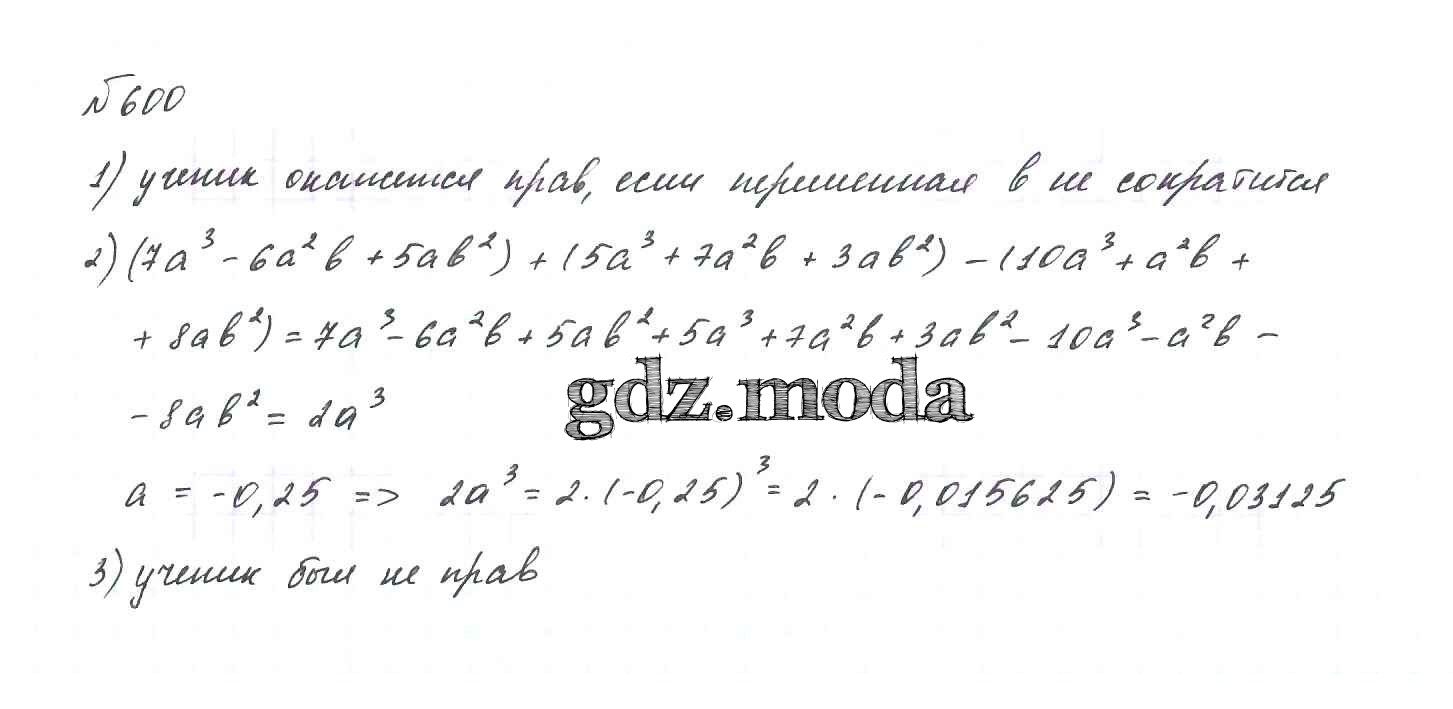 №600
1) ученик окажется прав, если переменная в не сократится
2) (7a³ - 6a²b + 5ab²) + (5a³ + 7a²b + 3ab²) - (10a³ + a²b +
+ 8ab²) = 7a³ - 6a²b + 5ab² + 5a³ + 7a²b + 3ab² - 10a³ - a²b -
- 8ab² = 2a³
gdz.moda
a = -0,25 => 2a³ = 2·(-0,25)³ = 2·(-0,015625) = -0,03125
3) ученик был не прав